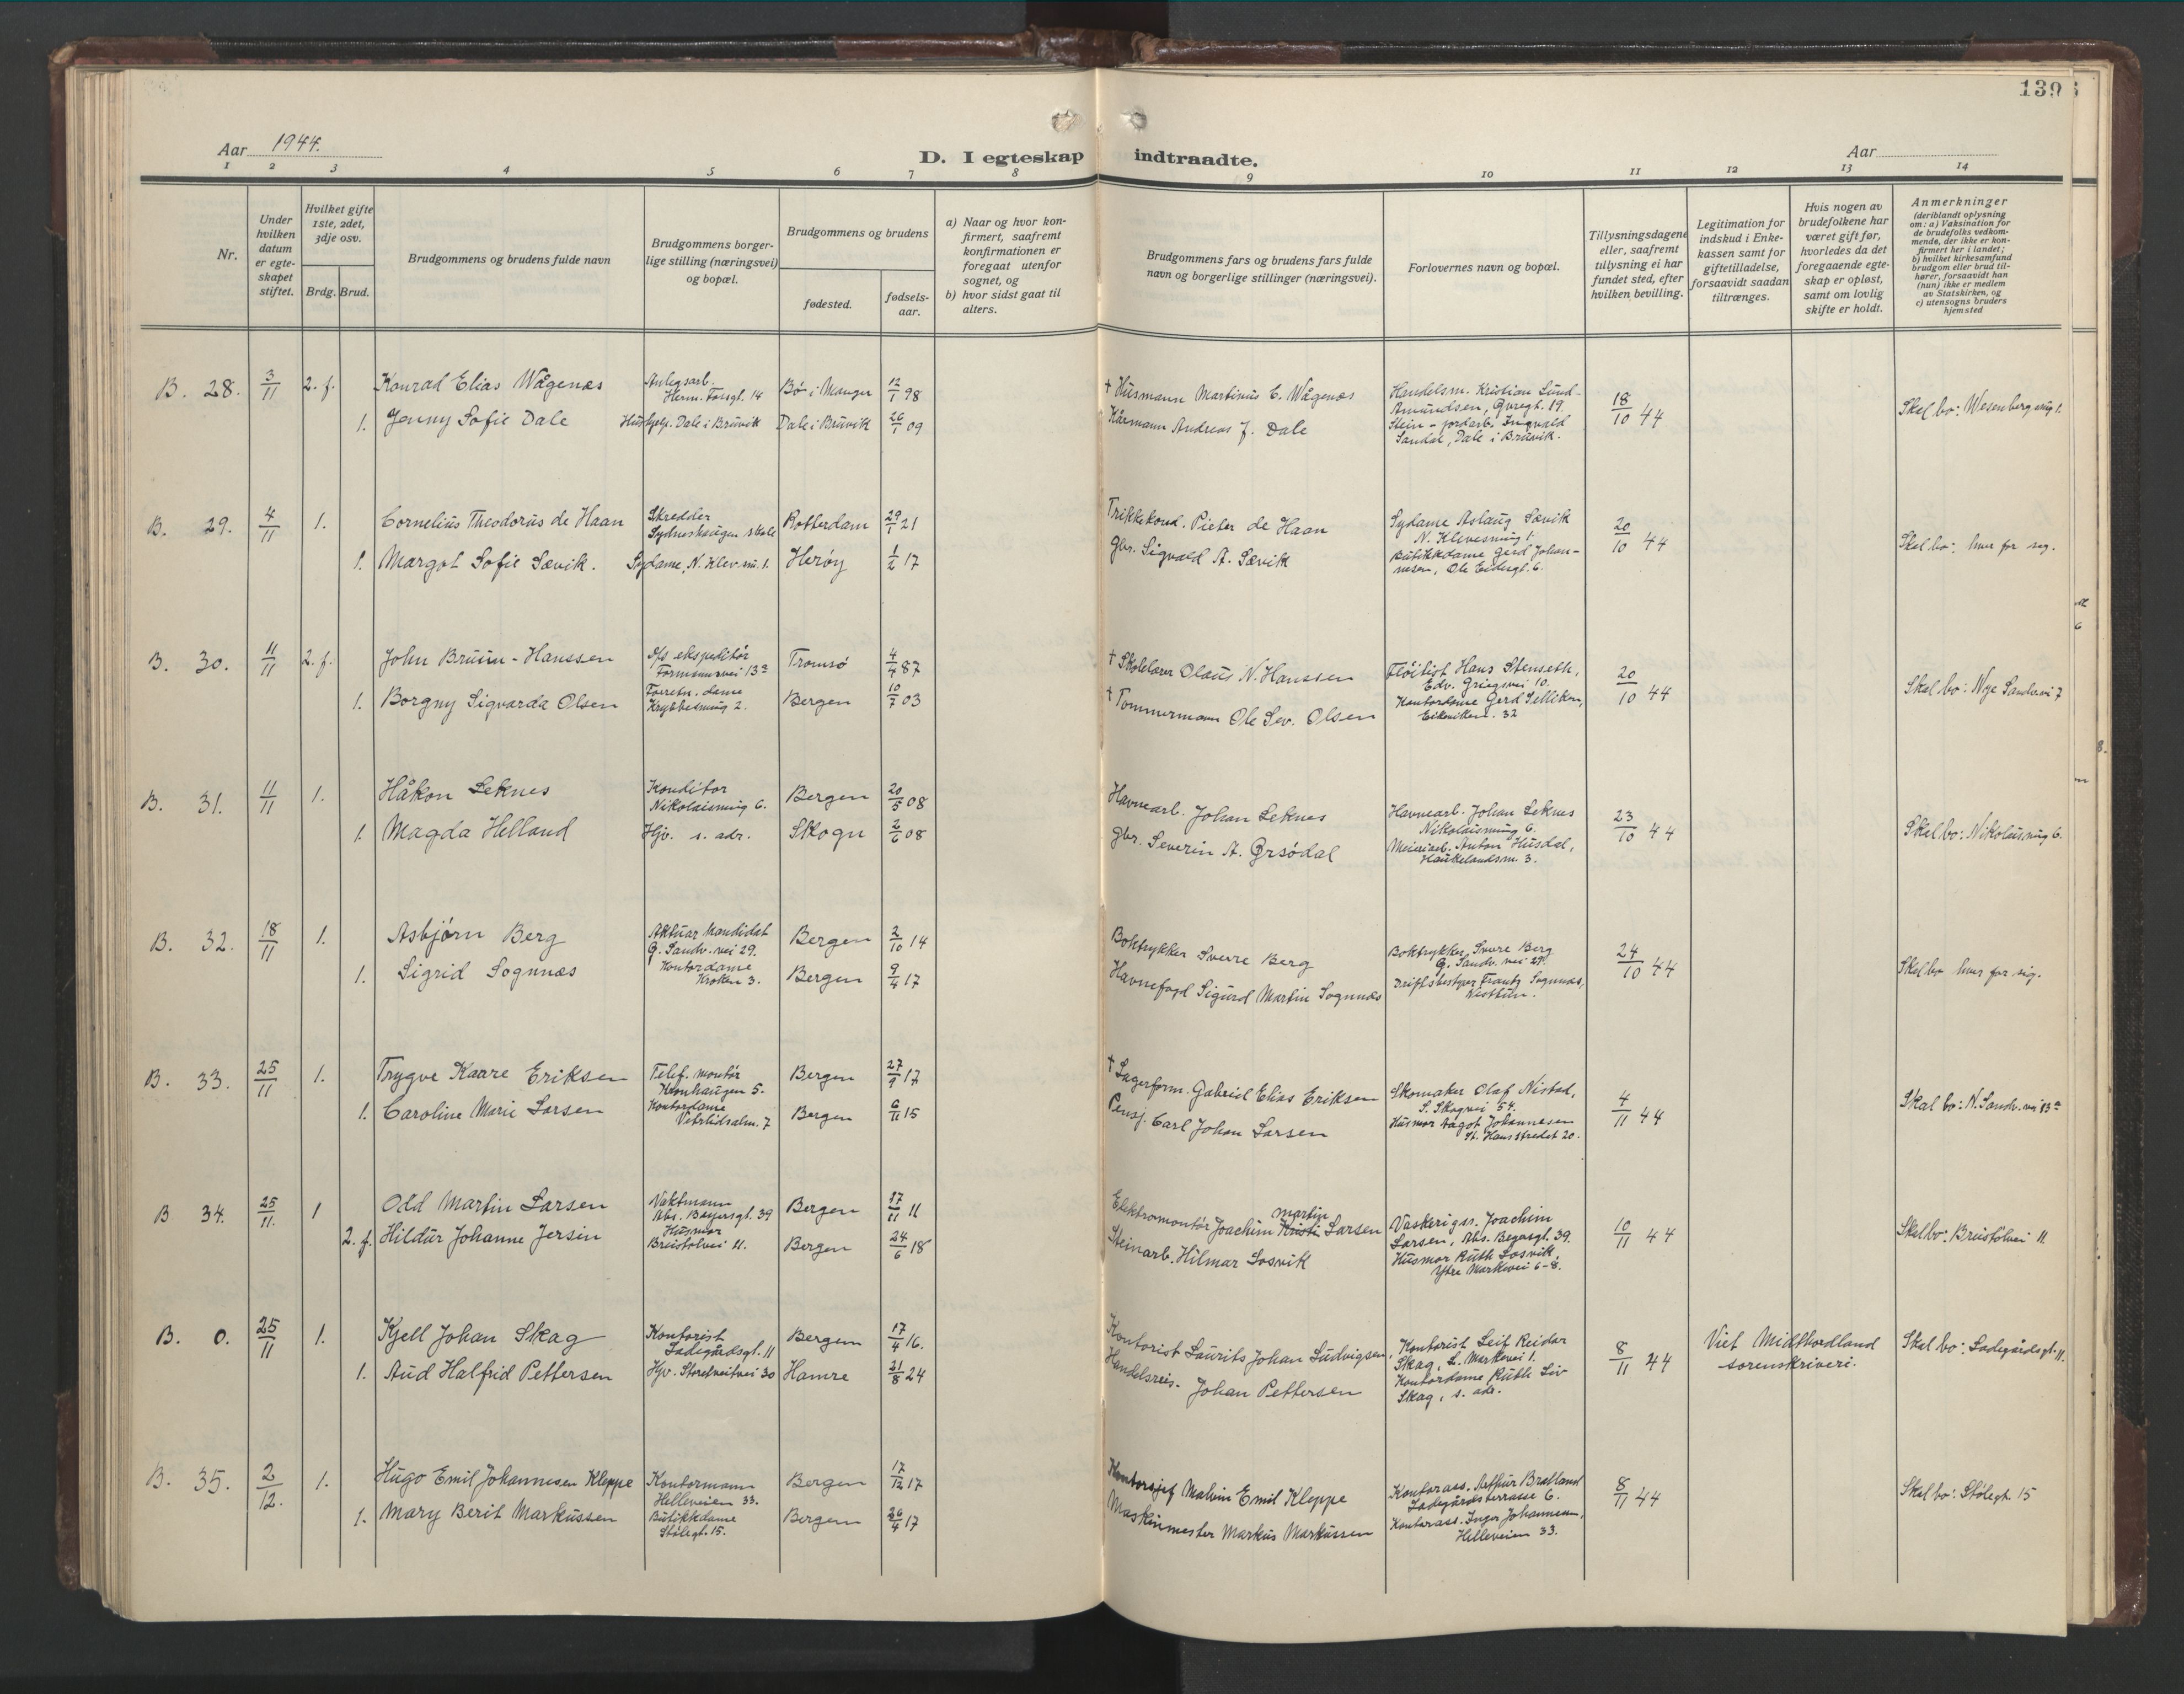 139
Aar 1944.
D. I egteskap indtraadte.
Aar
1 2 3 4 5 6 7 8 9 10 11 12 13 14
Nr.
Under hvilken datum er egte-skapet stiftet.
Hvilket gifte 1ste, 2det, 3dje osv.
Brdg. Brud.
Brudgommens og brudens fulde navn
Brudgommens borger-
lige stilling (næringsvei)
og bopæl.
Brudgommens og brudens
fødested.
fødsels-
aar.
a) Naar og hvor kon-
firmert, saafremt
konfirmationen er
foregaat utenfor
sognet, og
b) hvor sidst gaat til
alters.
Brudgommens fars og brudens fars fulde
navn og borgerlige stillinger (næringsvei).
Forlovernes navn og bopæl.
Tillysningsdagene
eller, saafremt
tillysning ei har
fundet sted, efter
hvilken bevilling.
Legitimation for
indskud i Enke-
kassen samt for
giftetilladelse,
forsaavidt saadan
tiltrænges.
Hvis nogen av
brudefolkene har
været gift før,
hvorledes da det
foregaaende egte-
skap er opløst,
samt om lovlig
skifte er holdt.
Anmerkninger
(deriblandt oplysning
om: a) Vaksination for
de brudefolks vedkom-
mende, der ikke er kon-
firmert her i landet;
b) hvilket kirkesamfund
brudgom eller brud til-
hører, forsaavidt han
(hun) ikke er medlem
av Statskirken, og
c) utensogns bruders
hjemsted
B. 28. 3/11 2. f. Konrad Elias Wågenæs
Anlegsarb.
Herm. Fossgt. 14
Bø i Manger 12/1 98
1. Jenny Sofie Dale
Hushjelp. Dale i Bruvik
Dale i Bruvik 26/1 09
† Husmann Martinus E. Wågenæs
Kårmann Andreas J. Dale
Handelsm. Kristian Lund-
Amundsen, Øvregt. 19.
Stein- jordarb. Ingvald
Sandal, Dale i Bruvik.
18/10 44
Skal bo: Wesenbergsmug 1.
B. 29. 4/11 1. Cornelius Theodorus de Haan
Skredder
Sydneshaugen skole
Rotterdam 29/1 21
1. Margot Sofie Sævik.
Sydame, N. Klev.sm. 1.
Herøy 1/2 17
Trikkekond. Pieter de Haan
Gbr. Sigvald A. Sævik
Sydame Aslaug Sævik
N. Klevesmug 1.
Butikkdame Gerd Johan-
nesen, Ole
20/10 44
Skal bo: hver for seg.
B. 30. 11/11 2. f. John Bruun-Hanssen
D/s ekspeditør
Formannsvei 13a
Tromsø 4/4 87
1. Borgny Sigvarda Olsen
Forretn. dame
Krybbesmug 2.
Bergen 10/7 03
† Skolelærer Olaus N. Hanssen
† Tømmermann Ole Sev. Olsen
Fløitist Hans Stenseth,
Edv. Griegsvei 10.
Kontordame Gerd Selliken,
Eikeviken. 32
20/10 44
Skal bo: Nye Sandv.vei 7
B. 31. 11/11 1. Håkon Leknes
Konditor
Nikolaismug 6.
Bergen 20/5 08
1. Magda Helland
Hjv. s. adr.
Skogn 2/6 08
Havnearb. Johan Leknes
Gbr. Severin A.
Havnearb. Johan Leknes
Nikolaismug 6.
Meieriarb. Anton Husdal,
Haukelandsm. 3.
23/10 44
Skal bo: Nikolaismug 6.
B. 32. 18/11 1. Asbjørn Berg
Aktuar kandidat
G. Sandv. vei 29.
Bergen 2/10 14
1. Sigrid Sognnæs
Kontordame
Kroken 3.
Bergen 9/4 17
Boktrykker Sverre Berg
Havnefogd Sigurd Martin Sognnæs
Boktrykker Sverre Berg
G. Sandv. vei 29.
Driftsbestyrer Frantz Sognnæs,
Nesttun.
24/10 44
Skal bo hver for sig.
B. 33. 25/11 1. Trygve Kaare Eriksen
Telef. montør
Kronhaugen 5.
Bergen 27/9 17
1. Caroline Marie Larsen
Kontordame
Vetrlidsalm. 7
Bergen 6/11 15
† Lagerform. Gabriel Elias Eriksen
Pensj. Carl Johan Larsen
Skomaker Olaf Nistad,
S. Skogvei 54.
Husmor Dagot Johannesen
St. Hansstredet 20.
4/11 44
Skal bo: N. Sandv. vei 13a
B 34. 25/11. 1 Odd Martin Larsen
Vaktmann
Abs. Beyersgt. 39
Bergen 17/11 11
2. f. Hildur Johanne Jersin
Husmor
Breistølvei 11.
Bergen 24/6 18
martin
Elektromontør Joachim Kristi Larsen
Steinarb. Hilmar Losvik
Vaskerigss. Joachim
Larsen, Abs. Begasgt. 39.
Husmor Ruth Losvik,
Ytre Markevei 6-8.
10/11 44
Skal bo: Breistølvei 11.
B. 0. 25/11 1. Kjell Johan Skag
Kontorist
Ladegårdsgt. 11
Bergen 17/4 16.
1. Aud Halfrid Pettersen
Hjv. Storetveitvei 30
Hamre 21/8 24
Kontorist Laurits Johan Ludvigsen,
Handelsreis. Johan Pettersen
Kontorist Leif Reidar
Skag, L. Markevei 1.
Kontordame Ruth Liv
Skag, s. adr.
8/11 44
Viet Midthordland
sorenskriveri.
Skal bo: Ladegårdsgt. 11.
B. 35. 2/12. 1. Hugo Emil Johannesen Kleppe
Kontormann
Helleveien 33.
Bergen 17/12 17
1. Mary Berit Markussen
Butikkdame
Stølegt. 15.
Bergen 26/4 17
Kontorsjef Malvin Emil Kleppe
Maskinmester Markus Markussen
Kontorass. Arthur Bratland
Ladegårdsterrasse 6.
Kontorass. Inger Johannesen,
Helleveien 33.
8/11 44
Skal bo: Stølegt. 15